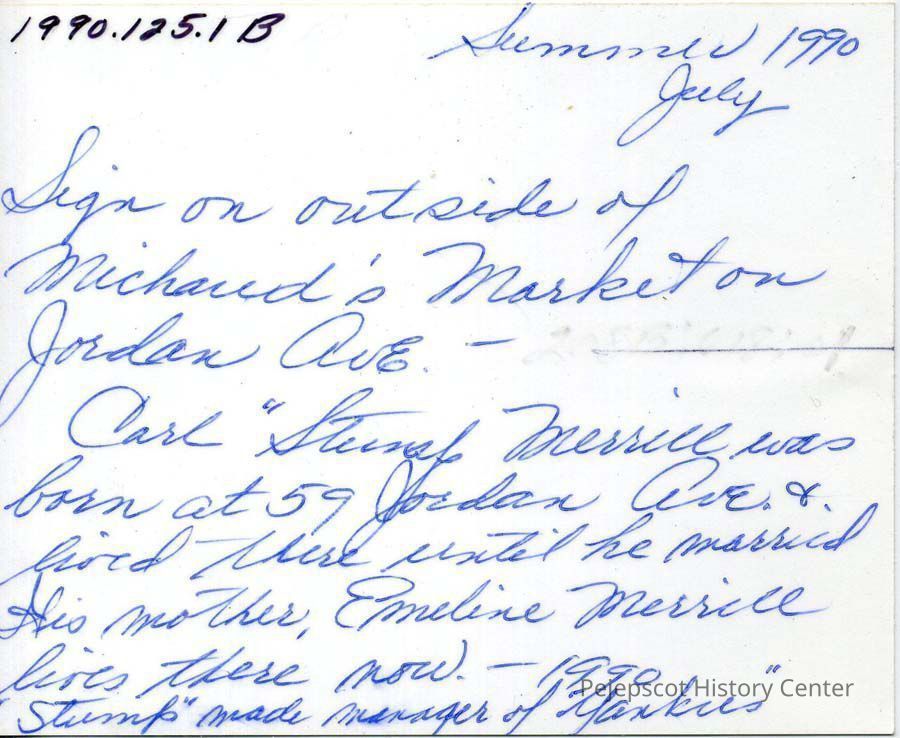 1990.125.1 B
Summer 1990
July
Sign on outside of
Michaud's Market on
Jordan AvE. -
Carl "Stump Merrill was
born at 59 Jordan AvE. &
lived there until he married
His mother, Emeline Merrill
lives there now. - 1990
"Stump" made manager of "Yankies"
Pejepscot History Center